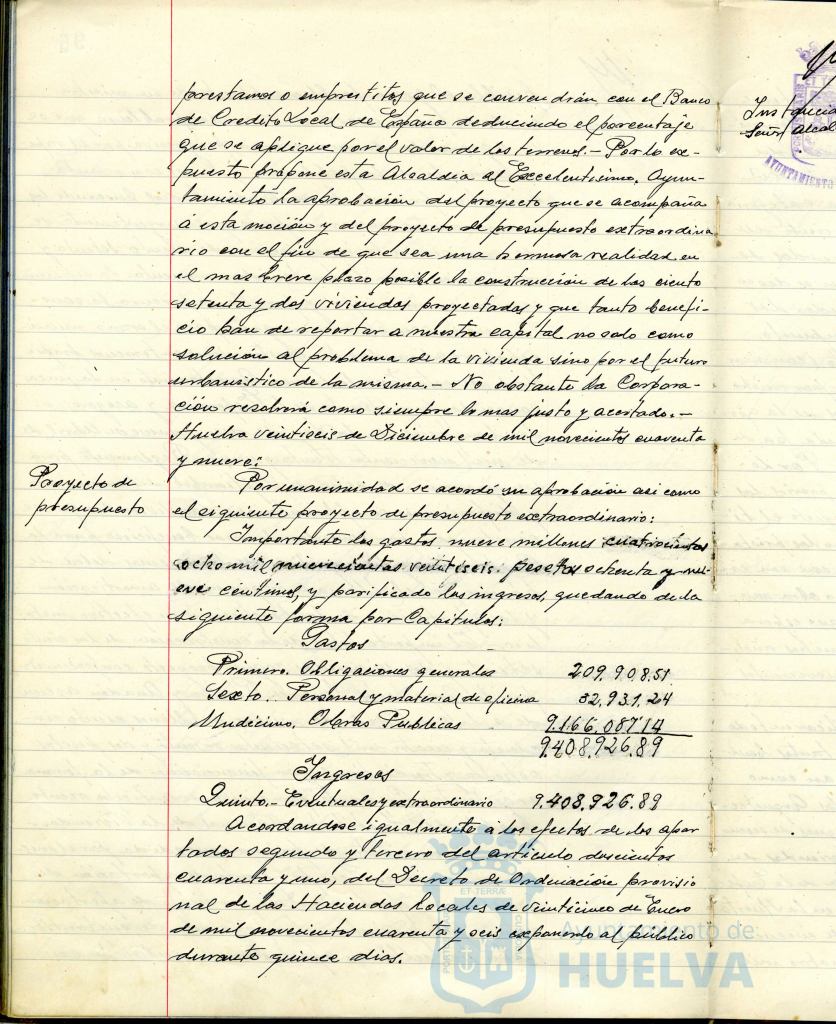 prestamos o emprestitos que se convendrán con el Banco
de Credito Local de España deduciendo el porcentaje
que se aplique por el valor de los terrenos.- Por lo ex-
puesto propone esta Alcaldia al Excelentisimo. Ayun-
tamiento la aprobación del proyecto que se acompaña
á esta moción y del proyecto de presupuesto extraordina
rio con el fin de que sea una hermosa realidad en
el mas breve plazo posible la construcción de las ciento
setenta y dos viviendas proyectadas y que tanto benefi-
cio han de reportar a nuestra capital no solo como
solución al problema de la vivienda sino por el futuro
urbanístico de la misma.- No obstante la Corpora-
ción resolverá como siempre lo mas justo y acertado.-
Huelva veintiseis de Diciembre de mil novecientos cuarenta
y nueve:
Proyecto de
presupuesto
Por unanimidad se acordó su aprobación asi como
el siguiente proyecto de presupuesto extraordinario:
Importante los gastos nueve millones cuatrocientas
ocho mil novecientas veintiseis. pesetas ochenta y nu-
eve centimos, y parificado los ingresos, quedando de la
siguiente forma por Capitulos:
Gastos
Primero. Obligaciones generales 209.908.51
Sexto. Personal y material de oficina 32.931.24
Undécimo. Obras Publicas 9.166.087.14
9.408.926.89
Ingresos
Quinto.- Eventuales y extraordinario 9.408.926.89
Acordandose igualmente á los efectos de los apar
tados segundo y tercero del articulo doscientos
cuarenta y uno, del Decreto de Ordenación provisio
nal de las Haciendas locales de veinticinco de Enero
de mil novecientos cuarenta y seis exponerlo al público
durante quince dias.
Instancia
Señor Alcal
AYUNTAMIENTO
Ayuntamiento de
HUELVA